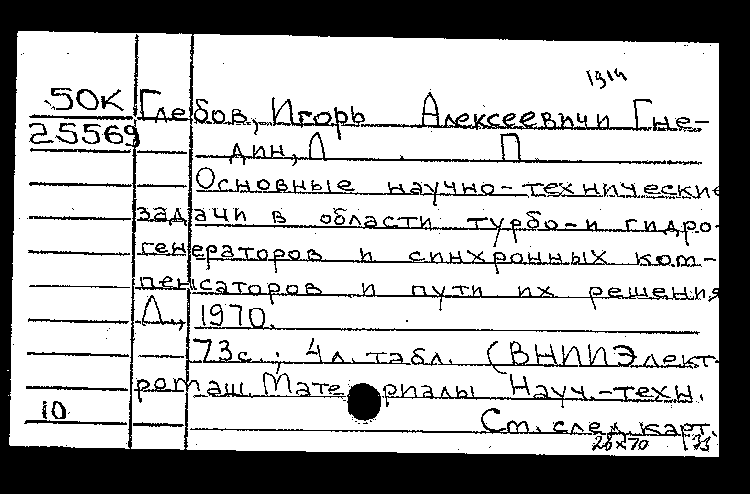 1914
50К Глебов, Игорь Алексеевич и Гне-
25569
дин, Л П
Основные научно-технические
задачи в области турбо- и гидро-
генераторов и синхронных ком-
пенсаторов и пути их решения
Л., 1970.
73с.; 4л. табл. (ВНИИЭлект-
ромаш. Материалы Науч.-техн.
10 См. след. карт.
28х70 173